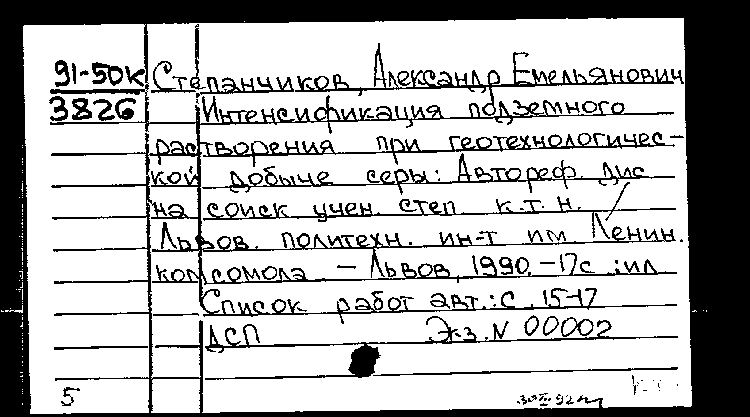 91-50к Степанчиков, Александр Емельянович
3826 Интенсификация подземного
растворения при геотехнологичес-
кой добыче серы: Автореф. дис
на соиск учен. степ к.т.н. /
Львов. политехн. ин-т им Ленин.
комсомола – Львов, 1990.–17с :ил
Список работ авт.: с. 15-17
ДСП Экз. N 00002
5